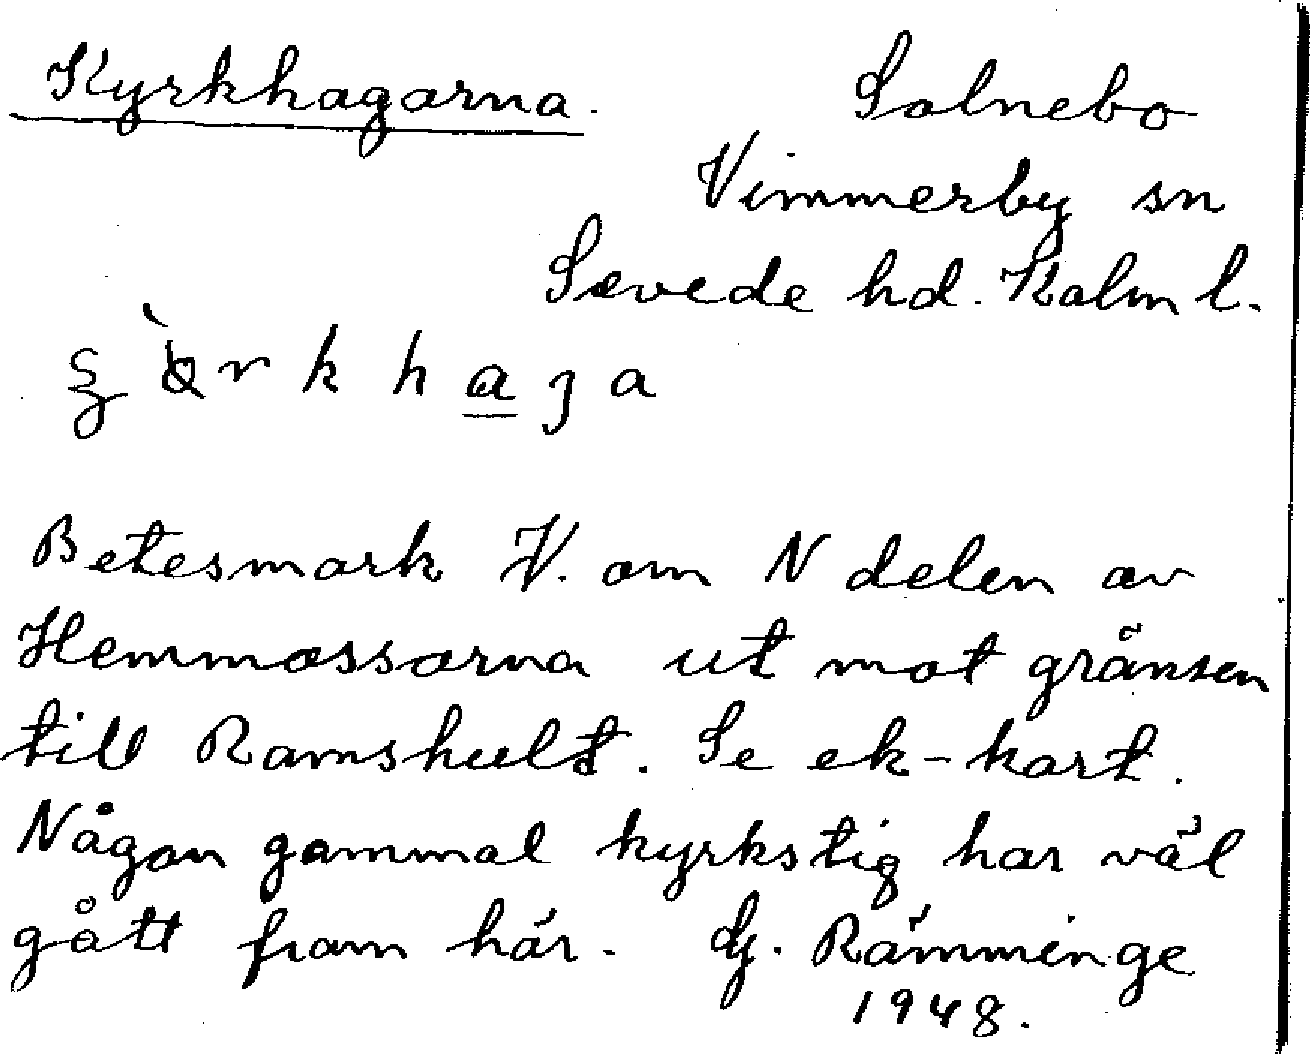 Kyrkhagarna.
Salnebo
Vimmerby sn
Sevede hd. Kalm l.
Betesmark V. om N delen av
Hemmossarna ut mot gränsen
till Ramshult. Se ek-kart.
Någon gammal kyrkstig har väl
gått fram här. G. Rämminge
1948.